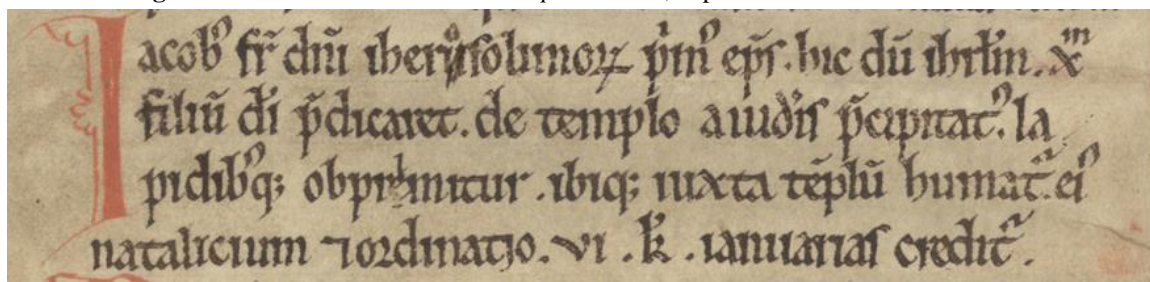 Iacobꝰ fr̄ dn̄i iherosolimoꝝ p̄mꝰ ep̄s. hic dū ihrl̄m. xp̄m
filiū dī p̄dicaret. de templo a iudeis p̄cipitatꝰ. la
pidibꝰq; obprimitur. ibiq; iuxta tēplū humat᷑. eiꝰ
natalicium ⁊ ordinatio. vi. k̄. ianuarias credit᷑.